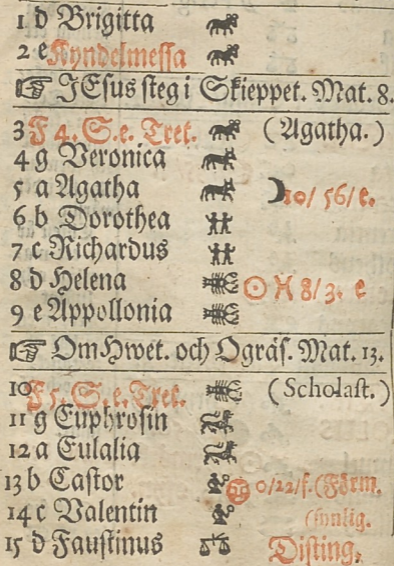 1 d Brigitta
2 e Kyndelmessa
JEsus steg i Skieppet. Mat. 8.
3 F 4. S. e. Tret. (Agatha.)
4 g Veronica
5 a Agatha 10/ 56/ e.
6 b Dorothea
7 c Richardus
8 d Helena ☉ ♓ 8/ 3. e
9 e Appollonia
Om Hwet. och Ogräs. Mat. 13.
10 F 5. S. e. Tret. (Scholast.)
11 g Euphrosin
12 a Eulalia
13 b Castor 0/22/f. (Förm.
14 c Valentin (synlig.
15 d Faustinus Disting.